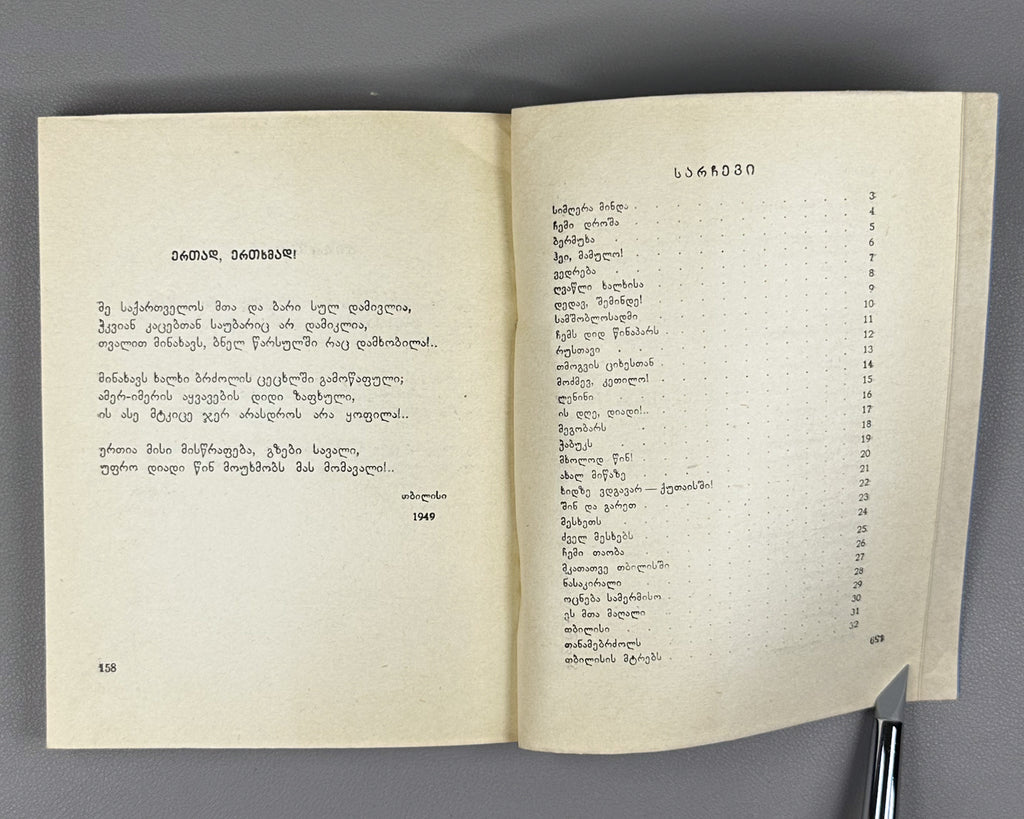 ერთად, ერთხმად!
მე საქართველოს მთა და ბარი სულ დამივლია,
ჰკვიან კაცებთან საუბარიც არ დამიკლია,
თვალით მინახავს, ბნელ წარსულში რაც დამხობილა!..
მინახავს ხალხი ბრძოლის ცეცხლში გამოწაფული;
ამერ-იმერის აყვავების დიდი ზაფხული,
ის ასე მტკიცე ჯერ არასდროს არა ყოფილა!..
ურთია მისი მისწრაფება, გზები სავალი,
უფრო დიადი წინ მოუხმობს მას მომავალი!..
თბილისი
1949
158
სარჩევი
სიმღერა მინდა 3
ჩემი დროშა 4
ბერმუხა 5
ჰეი, მამულო! 6
ვედრება 7
ღვაწლი ხალხისა 8
დედავ, შემინდე! 9
სამშობლოსადმი 10
ჩემს დიდ წინაპარს 11
რუსთავი 12
თმოგვის ციხესთან 13
მოძმევ, კეთილო! 14
ლენინი 15
ის დღე, დიადი!.. 16
მეგობარს 17
ჭაბუკს 18
მხოლოდ წინ! 19
ახალ მიწაზე 20
ხიდზე ვდგავარ — ქუთაისში! 21
შინ და გარეთ 22
მესხეთს 23
ძველ მესხებს 24
ჩემი თაობა 25
მკათათვე თბილისში 26
ნასაკირალი 27
ოცნება სამერმისო 28
ეს მთა მაღალი 29
თბილისი 30
თანამებრძოლს 31
თბილისის მტრებს 32
159